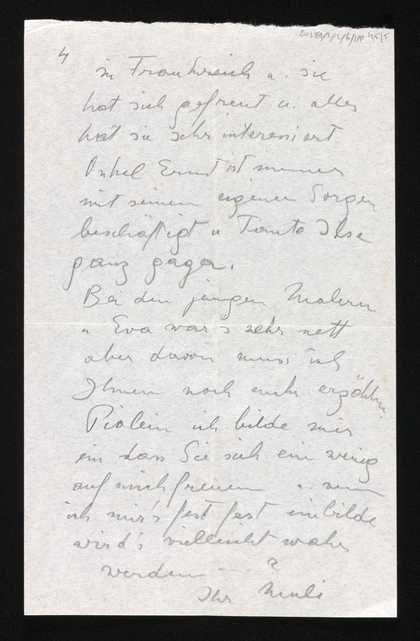 4
in Frankreich u. sie
hat sich gefreut u. alles
hat sie sehr interessiert
Onkel Ernst ist immer
mit seinen eigenen Sorgen
beschäftigt u Tante Ilse
ganz gaga.
Bei den jungen Malern
u Eva war's sehr nett
aber davon muss ich
Ihnen noch mehr erzählen.
ich bilde mir
ein dass Sie sich ein wenig
auf mich freuen u. wenn
ich mir's fest fest einbilde
wird's vielleicht wahr
werden ---- ?
Ihr